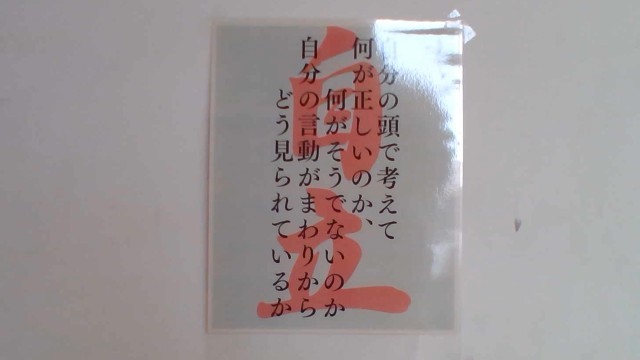 自立
自分の頭で考えて
何が正しいのか、
何がそうでないのか
自分の言動がまわりから
どう見られているか